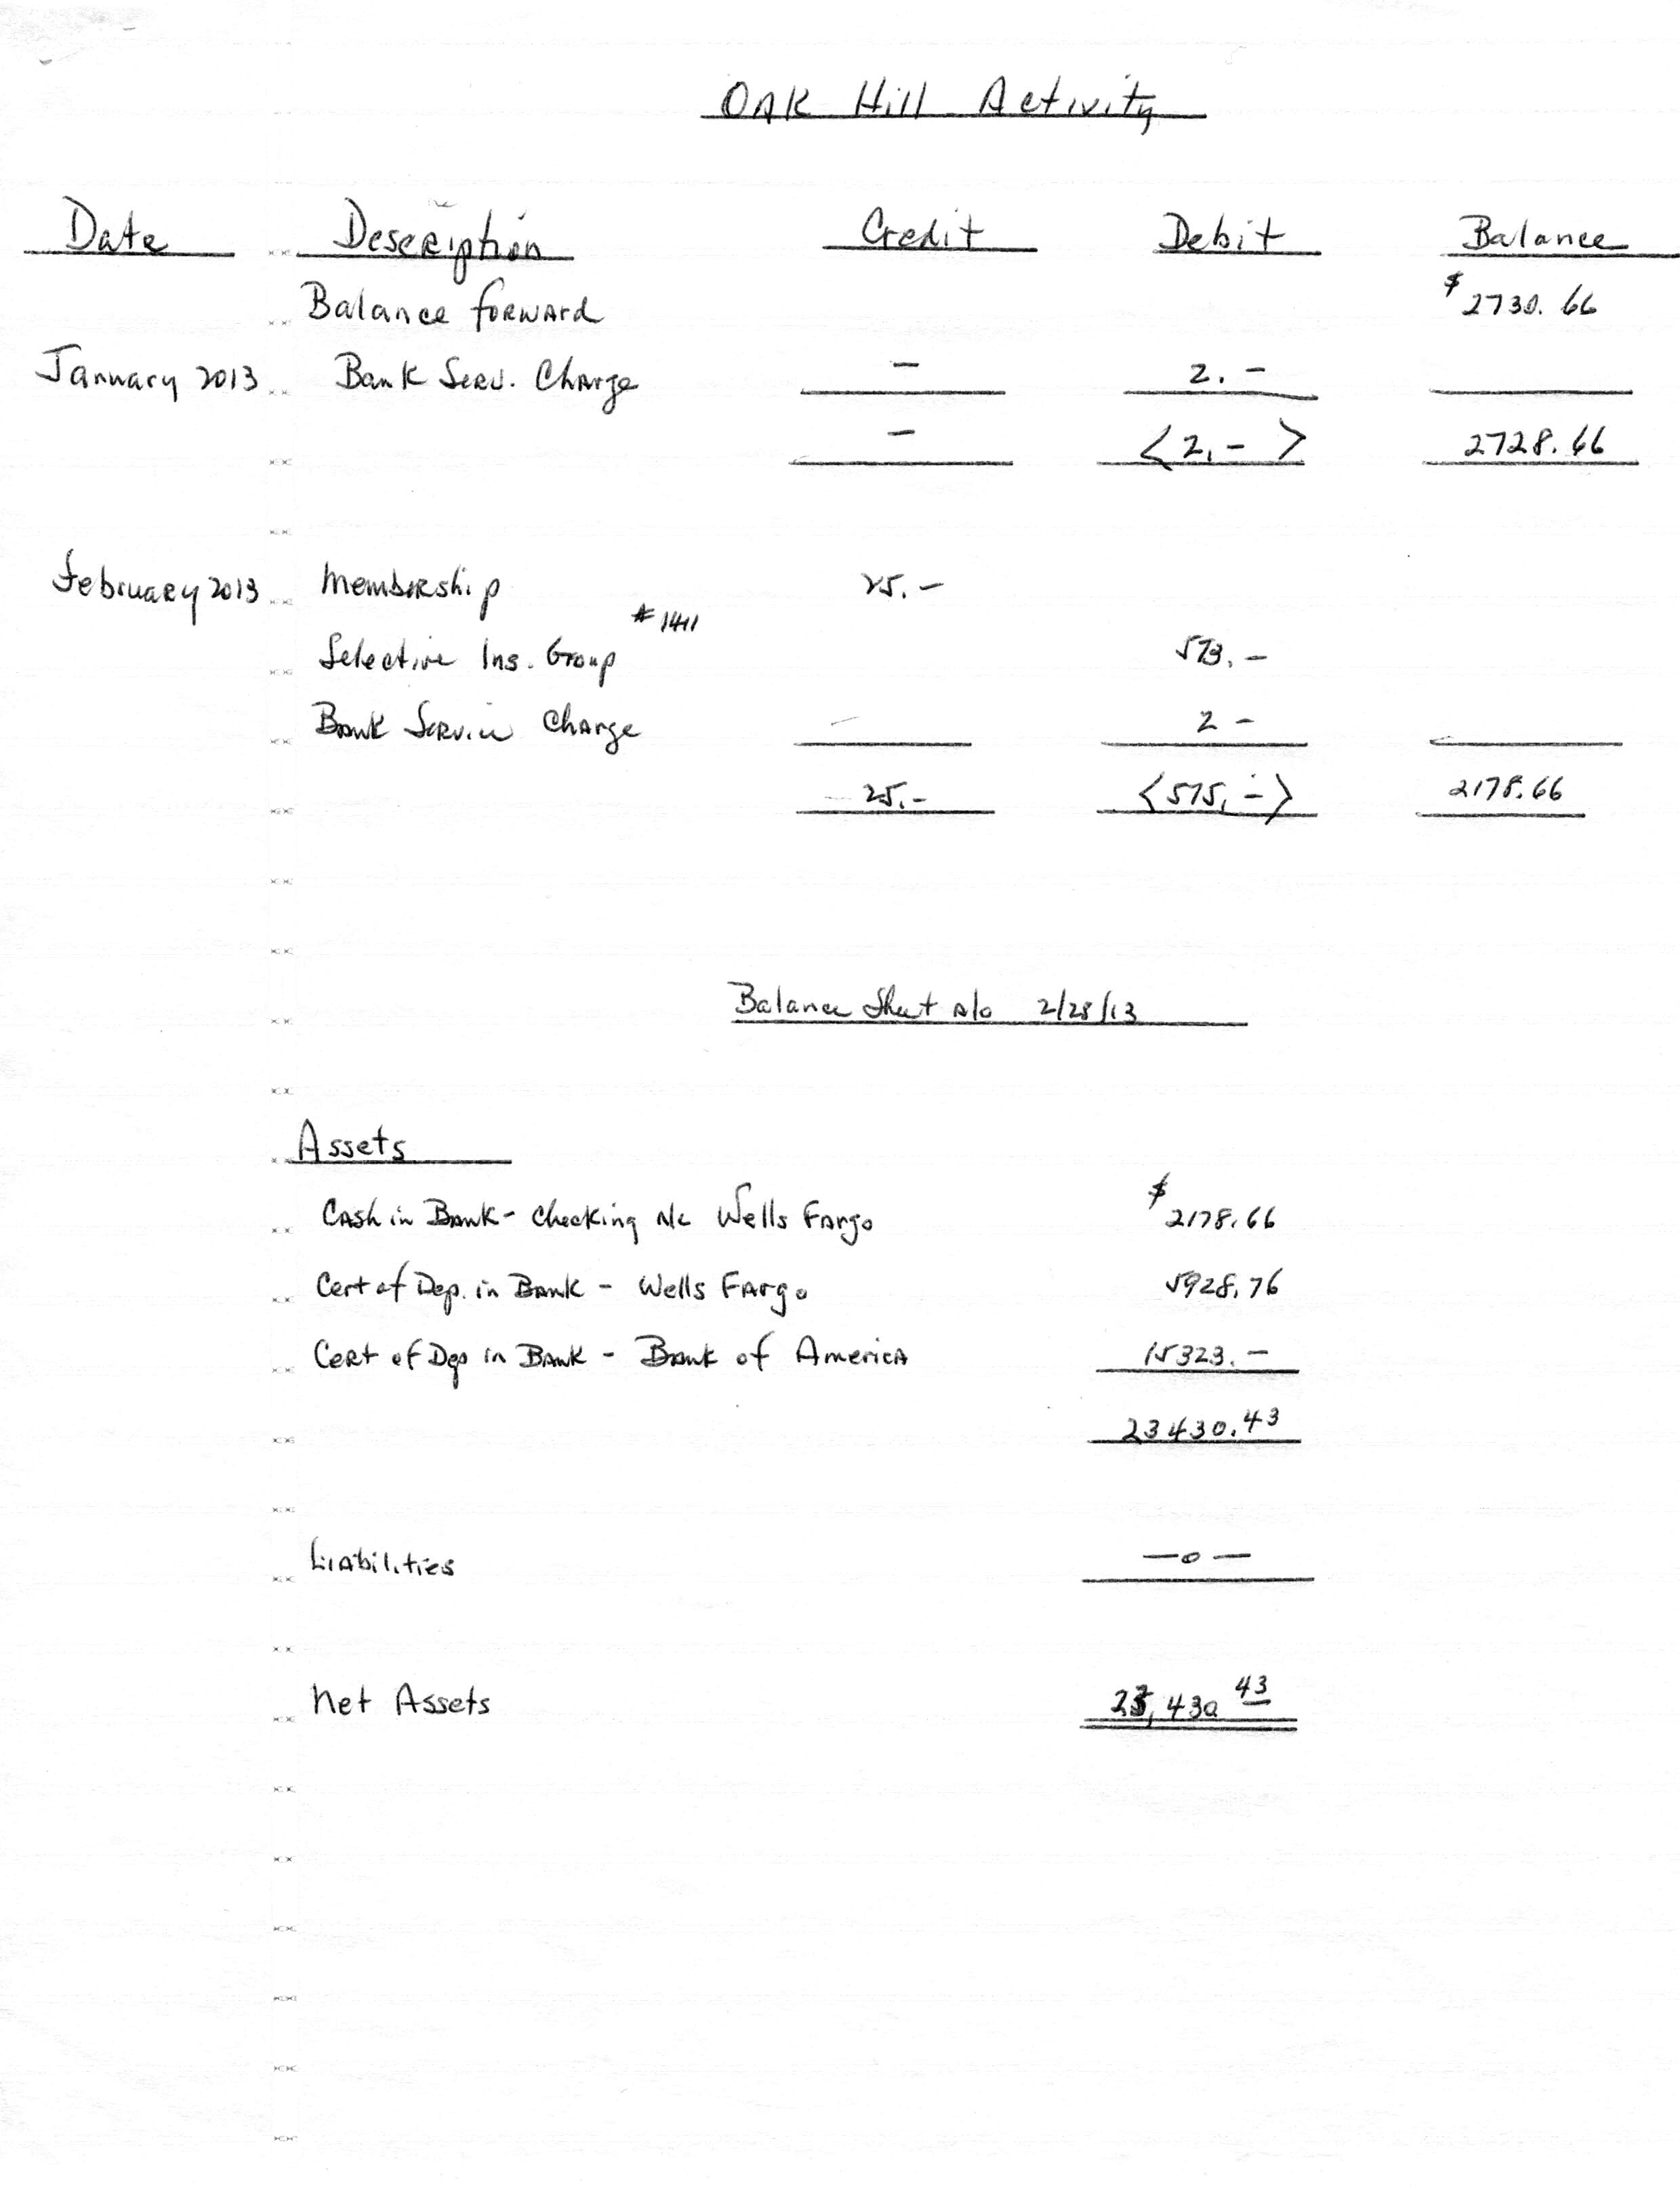 OAK Hill Activity
Date Description Credit Debit Balance
Balance forward $2730.66
January 2013 Bank Serv. Charge - 2.-
- <2.-> 2728.66
February 2013 Membership 25.-
#1411
Selective Ins. Group 573.-
Bank Service Charge - 2 -
25.- <575.-> 2178.66
Balance Sheet a/o 2/28/13
Assets
Cash in Bank - Checking A/c Wells Fargo $2178.66
Cert of Dep. in Bank - Wells Fargo 5928.76
Cert of Dep in Bank - Bank of America 15323.-
23430.43
Liabilities -0-
Net Assets 23,430 43